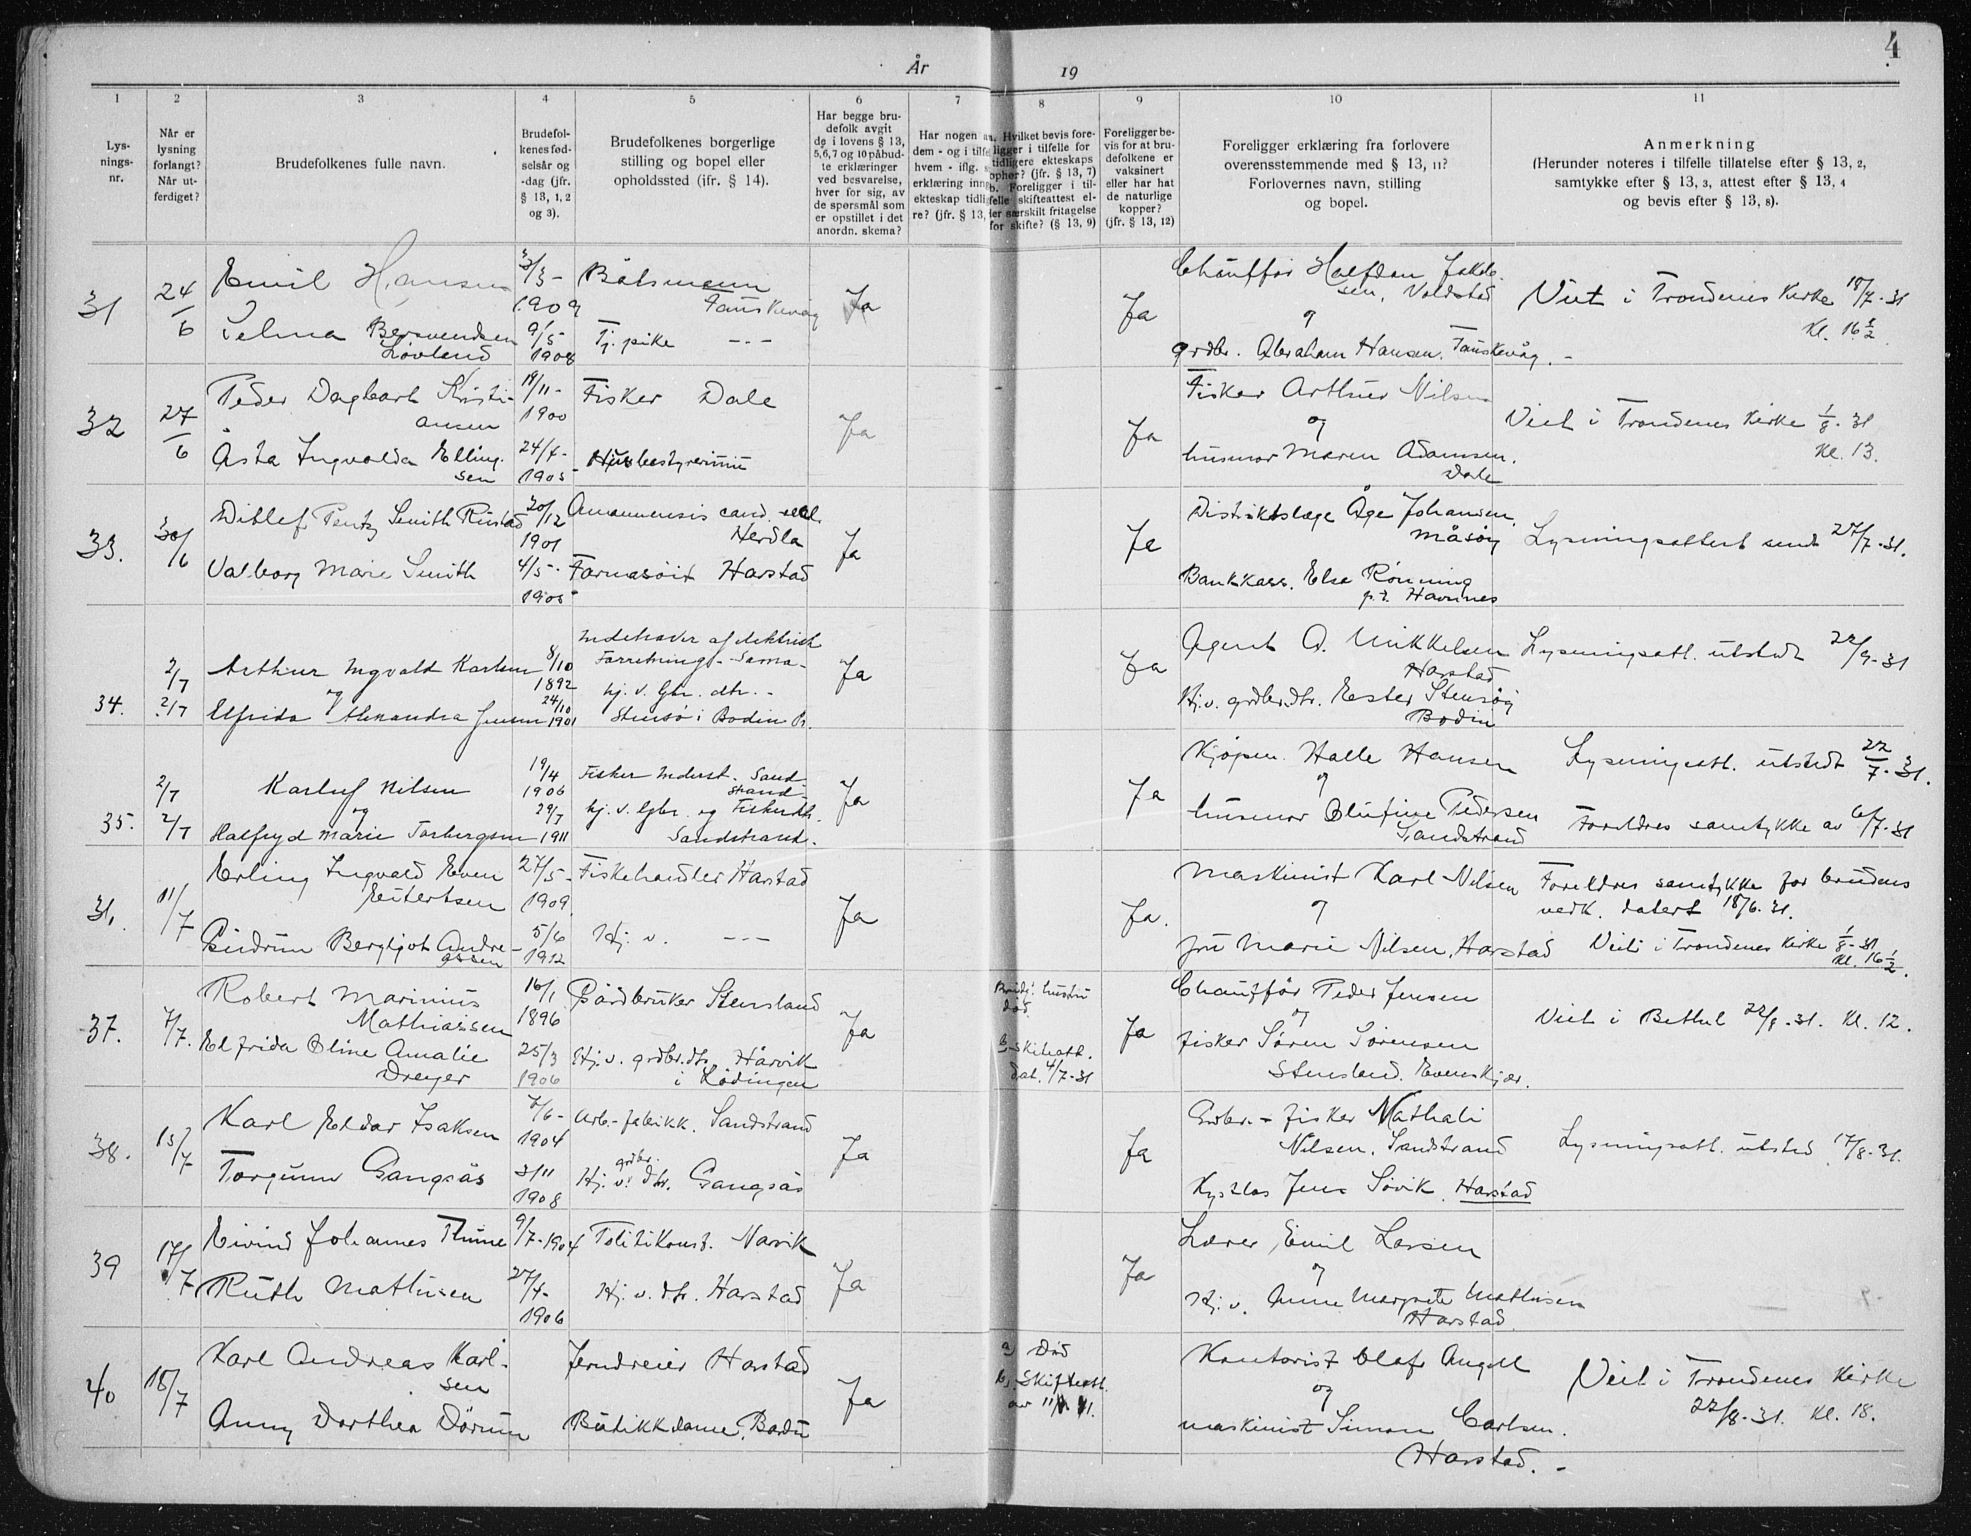 År 19
4
1 2 3 4 5 6 7 8 9 10 11
Lys-
nings-
nr.
Når er
lysning
forlangt?
Når ut-
ferdiget?
Brudefolkenes fulle navn.
Brudefol-
kenes fød-
selsår og
-dag (jfr.
§ 13, 1, 2
og 3).
Brudefolkenes borgerlige
stilling og bopel eller
opholdssted (ifr. § 14).
Har begge bru-
defolk avgit
de i lovens § 13,
5,6,7 og 10 påbud-
te erklæringer
ved besvarelse,
hver for sig, av
de spørsmål som
er opstillet i det
anordn. skema?
Har nogen a
dem - og i tilfe
hvem - iflg. s
erklæring inng
ekteskap tidlig
re? (jfr. § 13,
a. Hvilket bevis fore-
ligger i tilfelle for
tidligere ekteskaps
ophør? (jfr. § 13, 7)
b. Foreligger i til-
felle skifteattest el-
ler særskilt fritagelse
for skifte? (§ 13, 9)
Foreligger be-
vis for at bru-
defolkene er
vaksinert
eller har hat
de naturlige
kopper?
(jfr. § 13, 12)
Foreligger erklæring fra forlovere
overensstemmende med § 13, 11?
Forlovernes navn, stilling
og bopel.
Anmerkning
(Herunder noteres i tilfelle tillatelse efter § 13, 2,
samtykke efter § 13, 3, attest efter § 13, 4
og bevis efter § 13, 8).
31 24/6 Emil Hansen 3/3- 1909 Båtsmann
Fauskevåg Ja
Selma Bersvendsen
Løvland 9/5- 1908 Tj. pike - - -
Ja Chauffør Halfdan Jakob-
sen, Voldstad
og
grdbr. Abraham Hansen, Fauskevåg. -
Viet i Trondenes Kirke 18/7-31
Kl. 16 1/2
32 27/6 Peder Dagbart Kristi-
ansen 19/11- 1900 Fisker Dale Ja
Åsta Ingvalda Elling-
sen 24/4- 1905 Husbestyrerinne
Ja Fisker Arthur Nilsen
og
husmor Maren Adamsen.
Dale
Viet i Trondenes Kirke 1/8-31
Kl. 13.
33. 30/6 Ditlef Pentz Smith Rustad 20/12 1901 Amanuensis cand.
Herdla Ja
Valborg Marie Smith 4/5- 1905 Harstad
Ja Distriktslæge Åge Johansen,
Måsøy
Bankkass. Else Rønning
p.t. Havnnes
Lysningsattest sendt 27/7-31.
34. 2/7 2/7 Arthur Ingvald Karlsen 8/10 1892 Indehaver af elektrisk
Forretning - Sama- Ja
og
Elfrida Alexandra Jensen 24/10 1901 hj. v. gbr. dtr. -
Stensø i Bodin Pr.
Ja Agent A. Mikkelsen
Harstad
Hj.v. grdbr.dtr. Ester Stensøy
Bodin
Lysningsatt. utstedt 22/9-31
35. 2/7 2/7 Karluf Nilsen 19/4 1906 Fisker Inderst. Sand
strand Ja
og
Halfryd Marie Torbergsen 29/7 1911 hj. v. Gbr. og Fiskerdtr.
Sandstrand.
Ja Kjøpm. Halle Hansen
og
husmor Olufine Pedersen
Sandstrand
Lysningsatt. utstedt 22/7-31.
Foreldres samtykke av 6/7-31
31. 11/7 Erling Ingvald Even
Eilertsen 27/5- 1909 Fiskehandler Harstad Ja
Gudrun Bergljot Andre-
assen 5/6 1912 Hj. v. - - -
Ja. Maskinist Karl Nilsen
og
fru Marie Nilsen, Harstad
Foreldres samtykke for brudens
vedk. datert 18/6.31.
Viet i Trondenes Kirke 1/8-31
Kl. 16 1/2.
37. 7/7. Robert Marinius
Mathiassen 16/1 1896 Gårdbruker Stensland Ja
Elfrida Oline Amalie
Dreyer 25/3 1906 Hj.v. grdbr.dtr. Hårvik
i Lødingen
Brudg. hustru
død
b. skifteatt.
dat. 4/7-31
Ja Chauffør Peder Jensen
og
fisker Søren Sørensen
Stensland. Evenskjær.
Viet i Bethel 22/8-31. Kl. 12.
38. 13/7 Karl Eldar Isaksen 7/6- 1904 Arb.-fabrikk. Sandstrand Ja
Torgunn Gangsås 3/11 1908 Hj. v. grdbr. dtr. Gangsås
Ja Grdbr. - fisker Mathali
Nilsen, Sandstrand
Jens Søvik, Harstad
Lysningsatt. utsted 17/8-31.
39 17/7 Eivind Johannes Thune 9/7-1904 Politikonst. Narvik Ja
Ruth Mathisen 27/4- 1906 Hj. v. dtr. Harstad
Ja Lærer, Emil Larsen
og
Hj. v. Anne Margrete Mathisen
Harstad
40 18/7 Karl Andreas Karl-
sen Jerndreier Harstad Ja
Anny Dorthea Dørum Butikkdame, Bardu
a) Død
b. Skifteatt.
av 11/
Kontorist Olafr Angell
og
maskinist Simon Carlsen.
Harstad. -
Viet i Trondenes Kirke
22/8-31. Kl. 18.